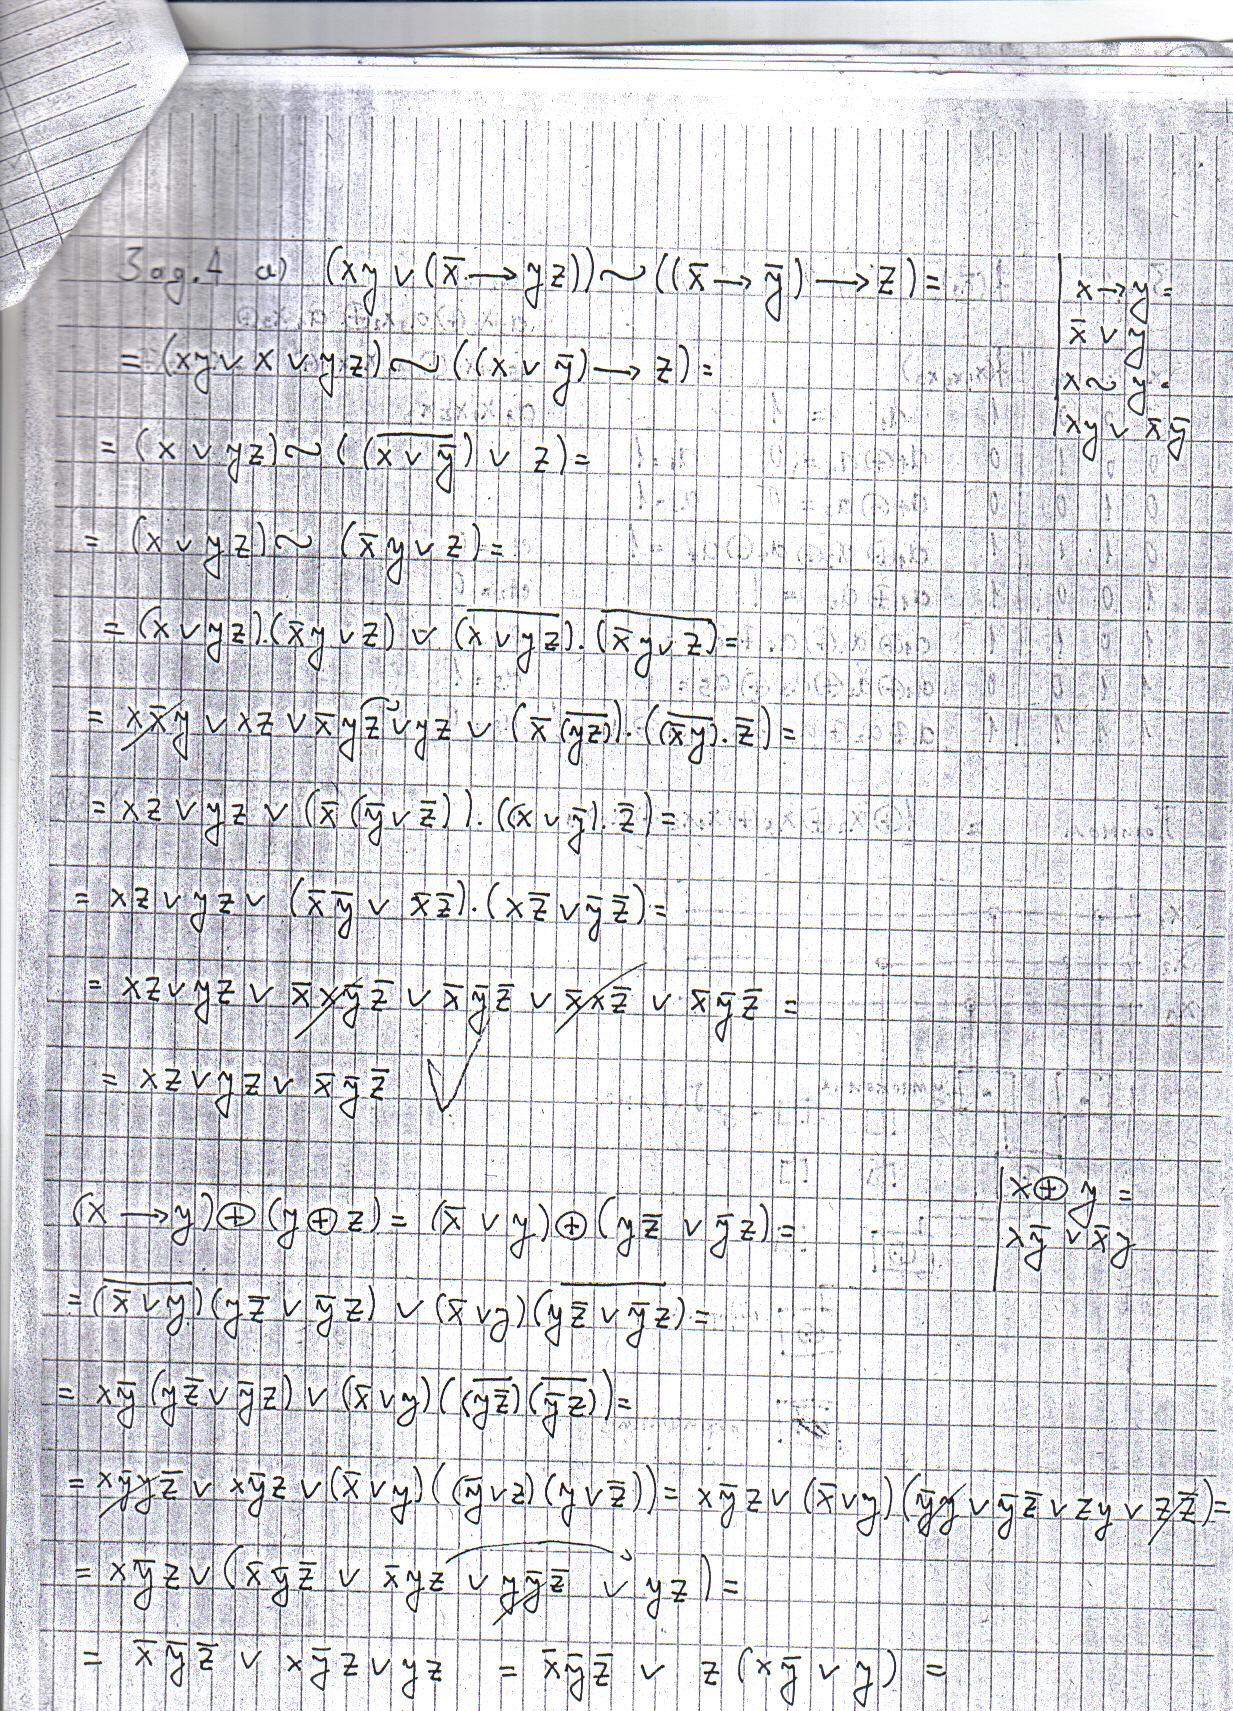 Зад.1 а) (xy ∨ (x̄ → yz)) ~ ((x̄ → ȳ) → z) =
x → y =
x̄ ∨ y
x ~ y =
xy ∨ x̄ȳ
= (xy ∨ x ∨ yz) ~ ((x ∨ ȳ) → z) =
= (x ∨ yz) ~ ((\overline{x ∨ ȳ}) ∨ z) =
= (x ∨ yz) ~ (x̄y ∨ z) =
= (x ∨ yz).(x̄y ∨ z) ∨ (\overline{x ∨ yz}).(\overline{x̄y ∨ z}) =
= xx̄y ∨ xz ∨ x̄yz ∨ yz ∨ (x̄(\overline{yz})).((\overline{x̄y}).z̄) =
= xz ∨ yz ∨ (x̄(ȳ ∨ z̄)).((x ∨ ȳ).z̄) =
= xz ∨ yz ∨ (x̄ȳ ∨ x̄z̄).(xz̄ ∨ ȳz̄) =
= xz ∨ yz ∨ x̄xȳz̄ ∨ x̄ȳz̄ ∨ x̄xz̄ ∨ x̄ȳz̄ =
= xz ∨ yz ∨ x̄ȳz̄
(x → y) ⊕ (y ⊕ z) = (x̄ ∨ y) ⊕ (yz̄ ∨ ȳz) =
x ⊕ y =
xȳ ∨ x̄y
= (\overline{x̄ ∨ y})(yz̄ ∨ ȳz) ∨ (x̄ ∨ y)(\overline{yz̄ ∨ ȳz}) =
= xȳ(yz̄ ∨ ȳz) ∨ (x̄ ∨ y)((\overline{yz̄})(\overline{ȳz})) =
= xȳyz̄ ∨ xȳz ∨ (x̄ ∨ y)((ȳ ∨ z)(y ∨ z̄)) = xȳz ∨ (x̄ ∨ y)(ȳy ∨ ȳz̄ ∨ zy ∨ zz̄) =
= xȳz ∨ (x̄ȳz̄ ∨ x̄yz ∨ yȳz̄ ∨ yz) =
= x̄ȳz̄ ∨ xȳz ∨ yz = x̄ȳz̄ ∨ z(xȳ ∨ y) =